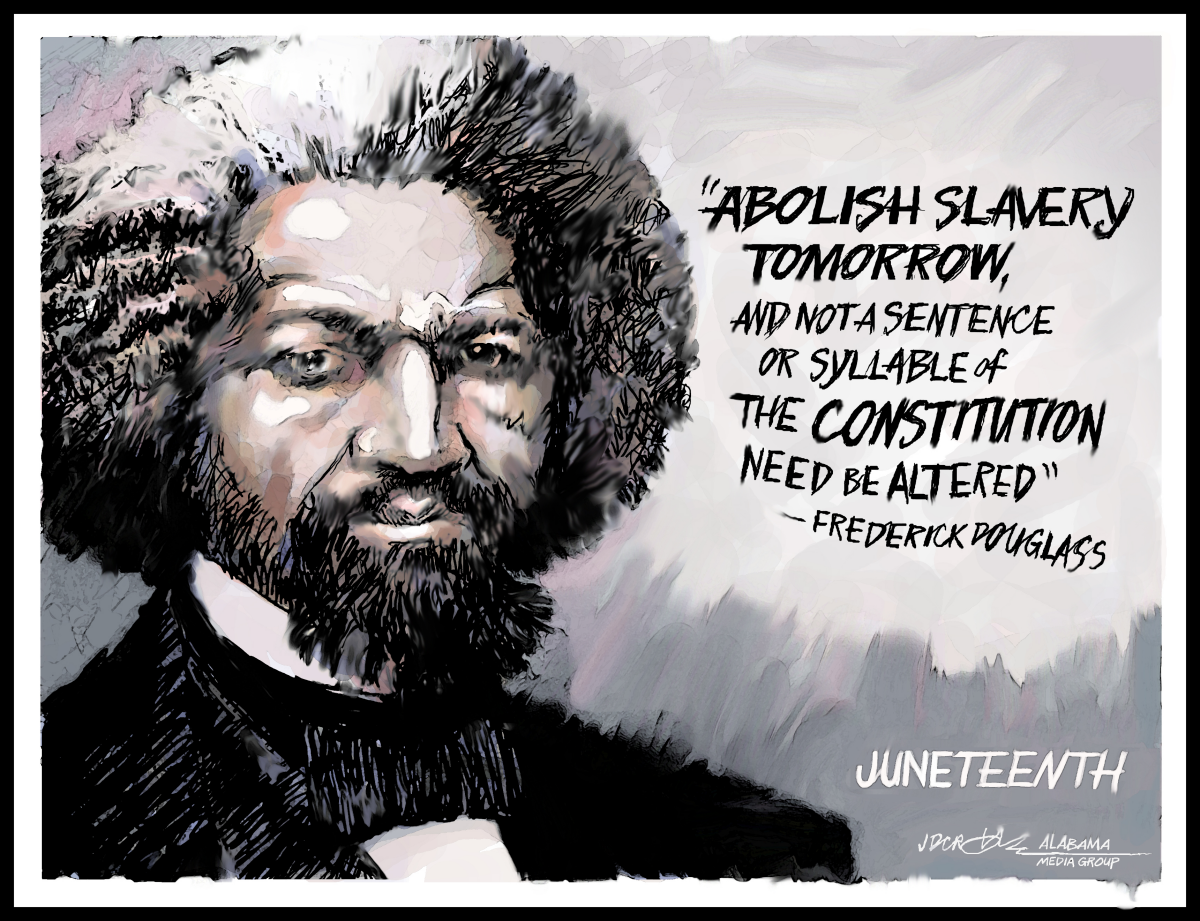 "ABOLISH SLAVERY
TOMORROW,
AND NOT A SENTENCE
OR SYLLABLE of
THE CONSTITUTION
NEED BE ALTERED"
— FREDERICK DOUGLASS
JUNETEENTH
ALABAMA
MEDIA GROUP